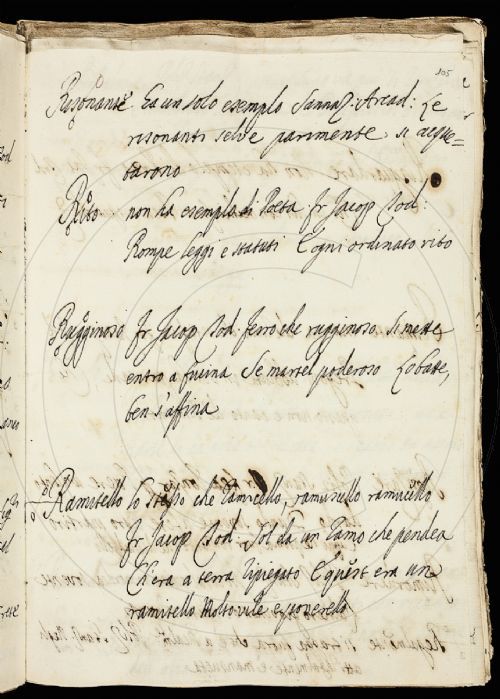 105
Risonante Ha un solo esempio Sannaz. Arcad: Le
risonanti selve parimente si acque=
tarono
Rito non ha esempio di Poeta. Fr Jacop Tod:
Rompe leggi e statuti E ogni ordinato rito
Rugginoso Fr Jacop Tod ferro che rugginoso si mette
entro a fucina Se martel poderoso Lo batte,
ben s'affina
Ramitello lo stesso che ramicello, ramuscello ramucello
Fr Jacop Tod: Sol da un ramo che pendea
Ch'era a terra ripiegato E quest era un
ramitello Molto vile e poverello